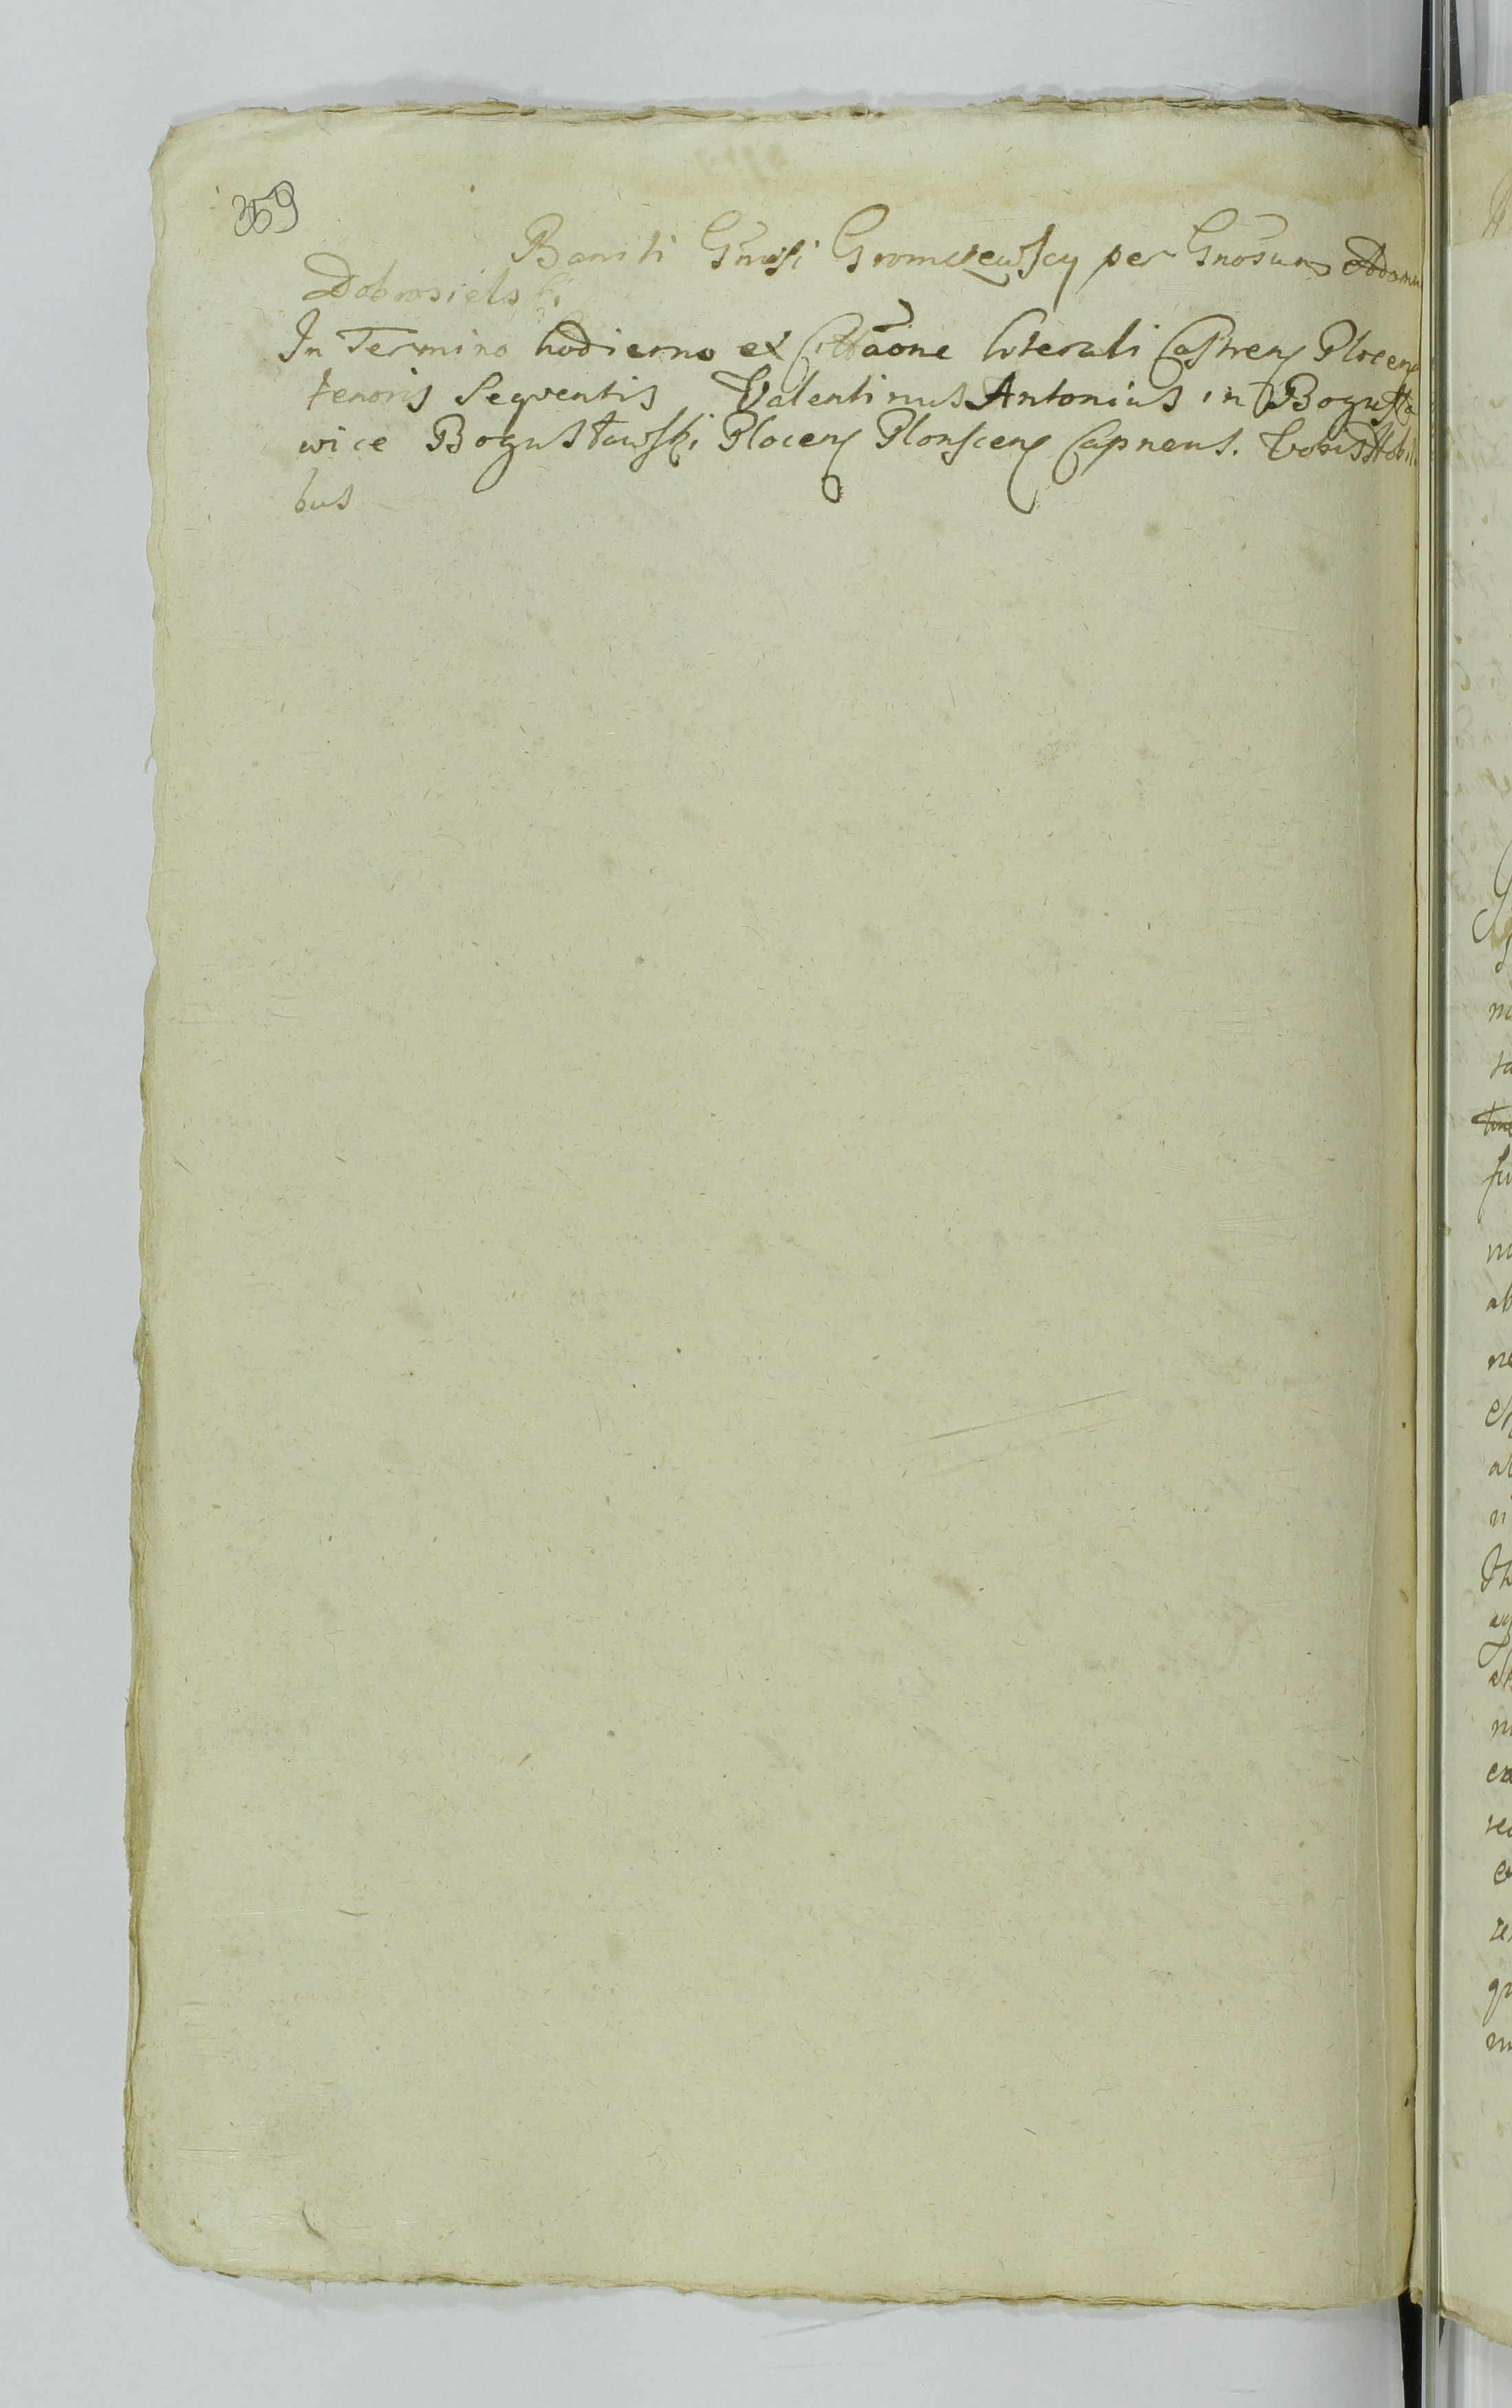 359
Baniti Gnosi Gromczewscy per Gnosum Adamu
Dobrosielski
In Termino hodierno ex Cittaone literali Castren Plocen
tenoris Sequentis Valentinus Antonius in Bogusła
wice Bogusławski Plocen Plonscen Capneus. Vobis Nobili
bus